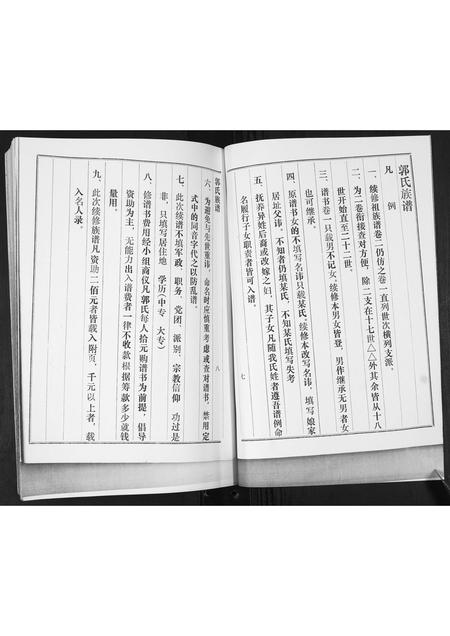 郭氏族谱
凡 例
一、续修祖族谱卷二仍仿之卷一直列世次横列支派。
二、为二卷衔接查对方便，除二支在十七世△△外其余皆从十八
世开始直至二十二世。
三、谱书卷一只载男不记女、续修本男女皆登，男作继承无男者女
也可继承。
四、原谱书女的不填写名讳只载某氏。续修本改写名讳，填写娘家
居址父讳。不知者仍填某氏，不知某氏填写失考
五、抚养异姓后裔或改嫁之妇，其子女凡随我氏姓者遵吾谱例命
名履行子女职责者皆可入谱。
七
郭氏族谱
八
六、为避免与先世重讳，命名时应慎重考虑或查对谱书，禁用定
式中的同音字代之以防乱谱。
七、此次续谱不填军政，职务，党团，派别，宗教信仰，功过是
非，只填写居住地，学历（中专，大专）
八、修谱书费用经小组商仪凡郭氏每人拾元购谱书为前提，倡导
资助为主，无能力出入谱费者一律不收款根据筹款多少就钱
量用。
九、此次续修族谱凡资助二佰元者皆载入附页，千元以上者，载
入名人录。